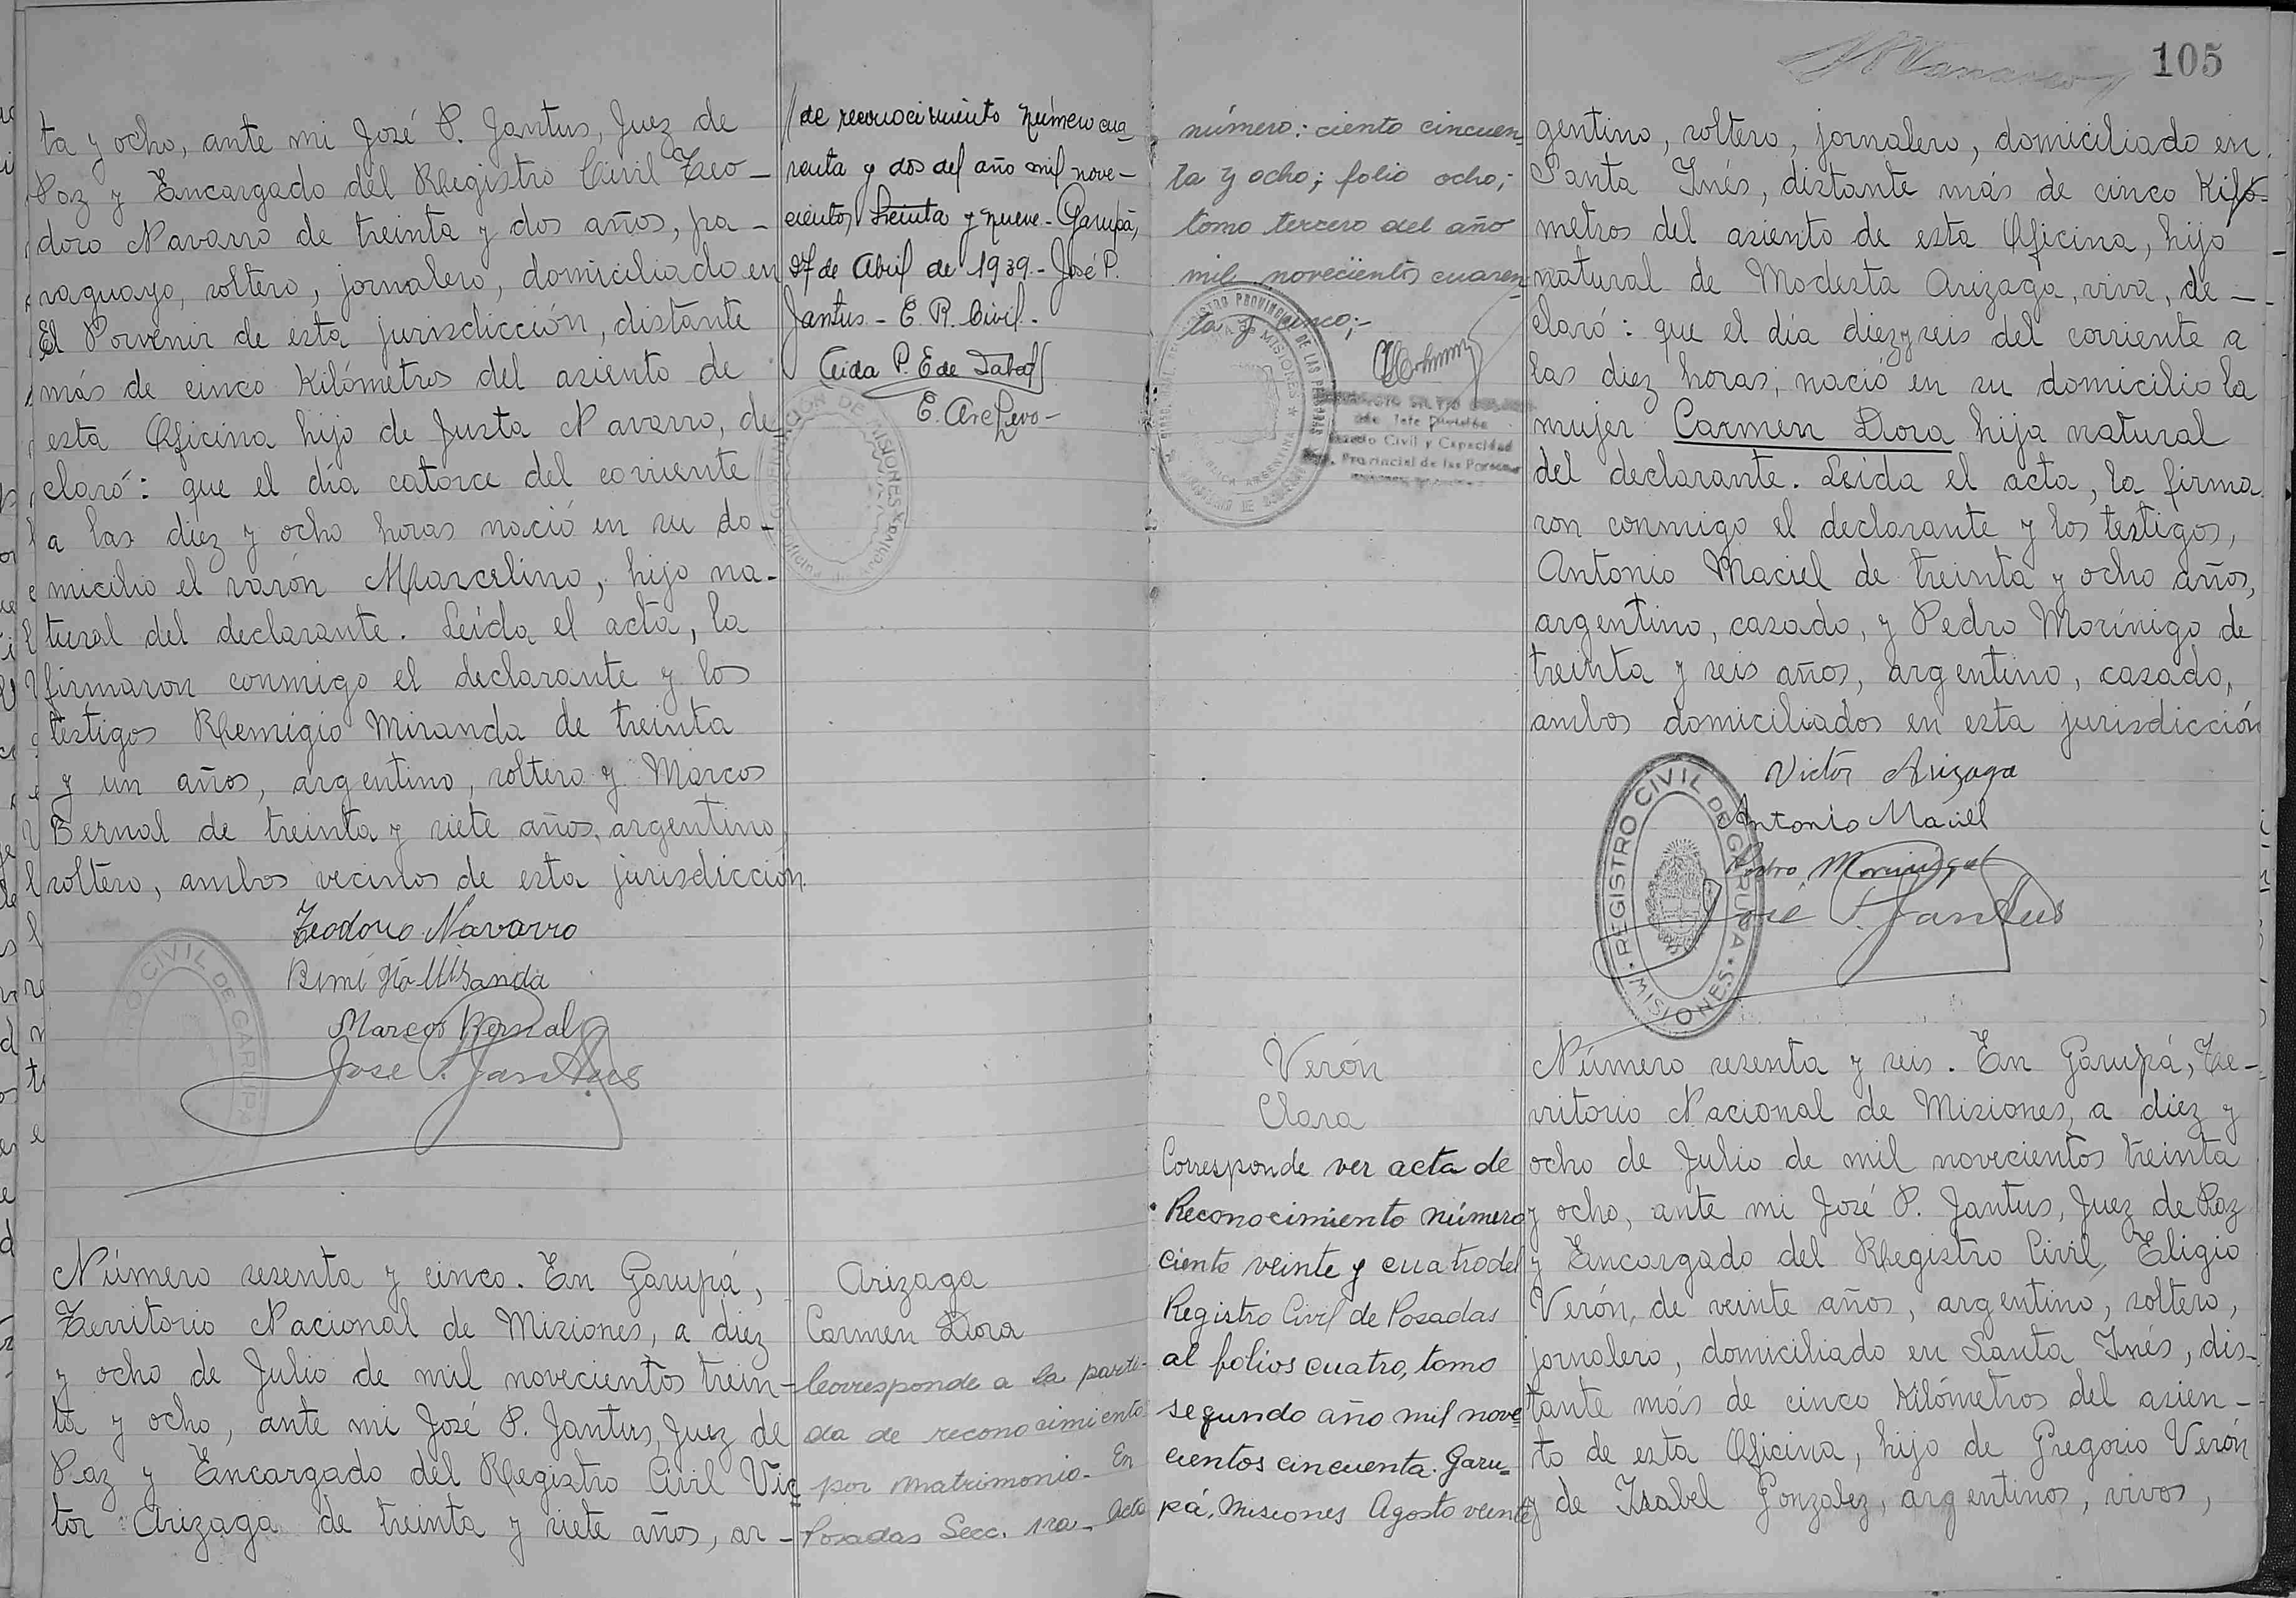 ta y ocho, ante mi José P. Jantus, Juez de
Paz y Encargado del Registro Civil Teo-
doro Navarro de treinta y dos años, pa-
raguayo, soltero, jornalero, domiciliado en
El Porvenir de esta jurisdicción, distante
más de cinco Kilómetros del asiento de
esta Oficina hijo de Justa Navarro, de
claró: que el día catorce del corriente
a las diez y ocho horas nació en su do-
micilio el varón Marcelino, hijo na-
tural del declarante. Leída el acta, la
firmaron conmigo el declarante y los
testigos Remigio Miranda de treinta
y un años, argentino, soltero y Marcos
Bernal de treinta y siete años, argentino,
soltero, ambos vecinos de esta jurisdicción.
Teodoro Navarro
Remigio Miranda
Marcos Bernal
José P. Jantus
REGISTRO CIVIL DE GARUPA
Número sesenta y cinco. En Garupá,
Territorio Nacional de Misiones, a diez
y ocho de Julio de mil novecientos trein-
ta y ocho, ante mi José P. Jantus, Juez de
Paz y Encargado del Registro Civil Vic
tor Arizaga de treinta y siete años, ar-
de reconocimiento número cua-
renta y dos del año mil nove-
cientos treinta y nueve - Garupá,
27 de Abril de 1939.- José P.
Jantus - E. R. Civil.-
E. Archivo-
Arizaga
Carmen Dora
Corresponde a la parti-
da de reconocimiento
por matrimonio - En
Posadas Secc. 1ra - Acta
número: ciento cincuen-
ta y ocho; folio ocho;
tomo tercero del año
mil novecientos cuaren-
ta y cinco;-
Verón
Clara
Corresponde ver acta de
Reconocimiento número
ciento veinte y cuatro del
Registro Civil de Posadas
al folios cuatro, tomo
segundo año mil nove-
cientos cincuenta. Garu-
pá, Misiones Agosto veinte
105
gentino, soltero, jornalero, domiciliado en
Santa Inés, distante más de cinco Kiló-
metros del asiento de esta Oficina, hijo
natural de Modesta Arizaga, viva, de-
claró: que el día diez y seis del corriente a
las diez horas, nació en su domicilio la
mujer Carmen Dora hija natural
del declarante. Leída el acta, la firma
ron conmigo el declarante y los testigos,
Antonio Maciel de treinta y ocho años,
argentino, casado, y Pedro Morínigo de
treinta y seis años, argentino, casado,
ambos domiciliados en esta jurisdicción
Victor Arizaga
Antonio Maciel
Pedro Morinigo
José P. Jantus
REGISTRO CIVIL DE GARUPA MISIONES
Número sesenta y seis. En Garupá, Te-
rritorio Nacional de Misiones, a diez y
ocho de Julio de mil novecientos treinta
y ocho, ante mi José P. Jantus, Juez de Paz
y Encargado del Registro Civil, Eligio
Verón, de veinte años, argentino, soltero,
jornalero, domiciliado en Santa Inés, dis-
tante más de cinco Kilómetros del asien-
to de esta Oficina, hijo de Gregorio Verón
y de Isabel Gonzalez, argentinos, vivos,